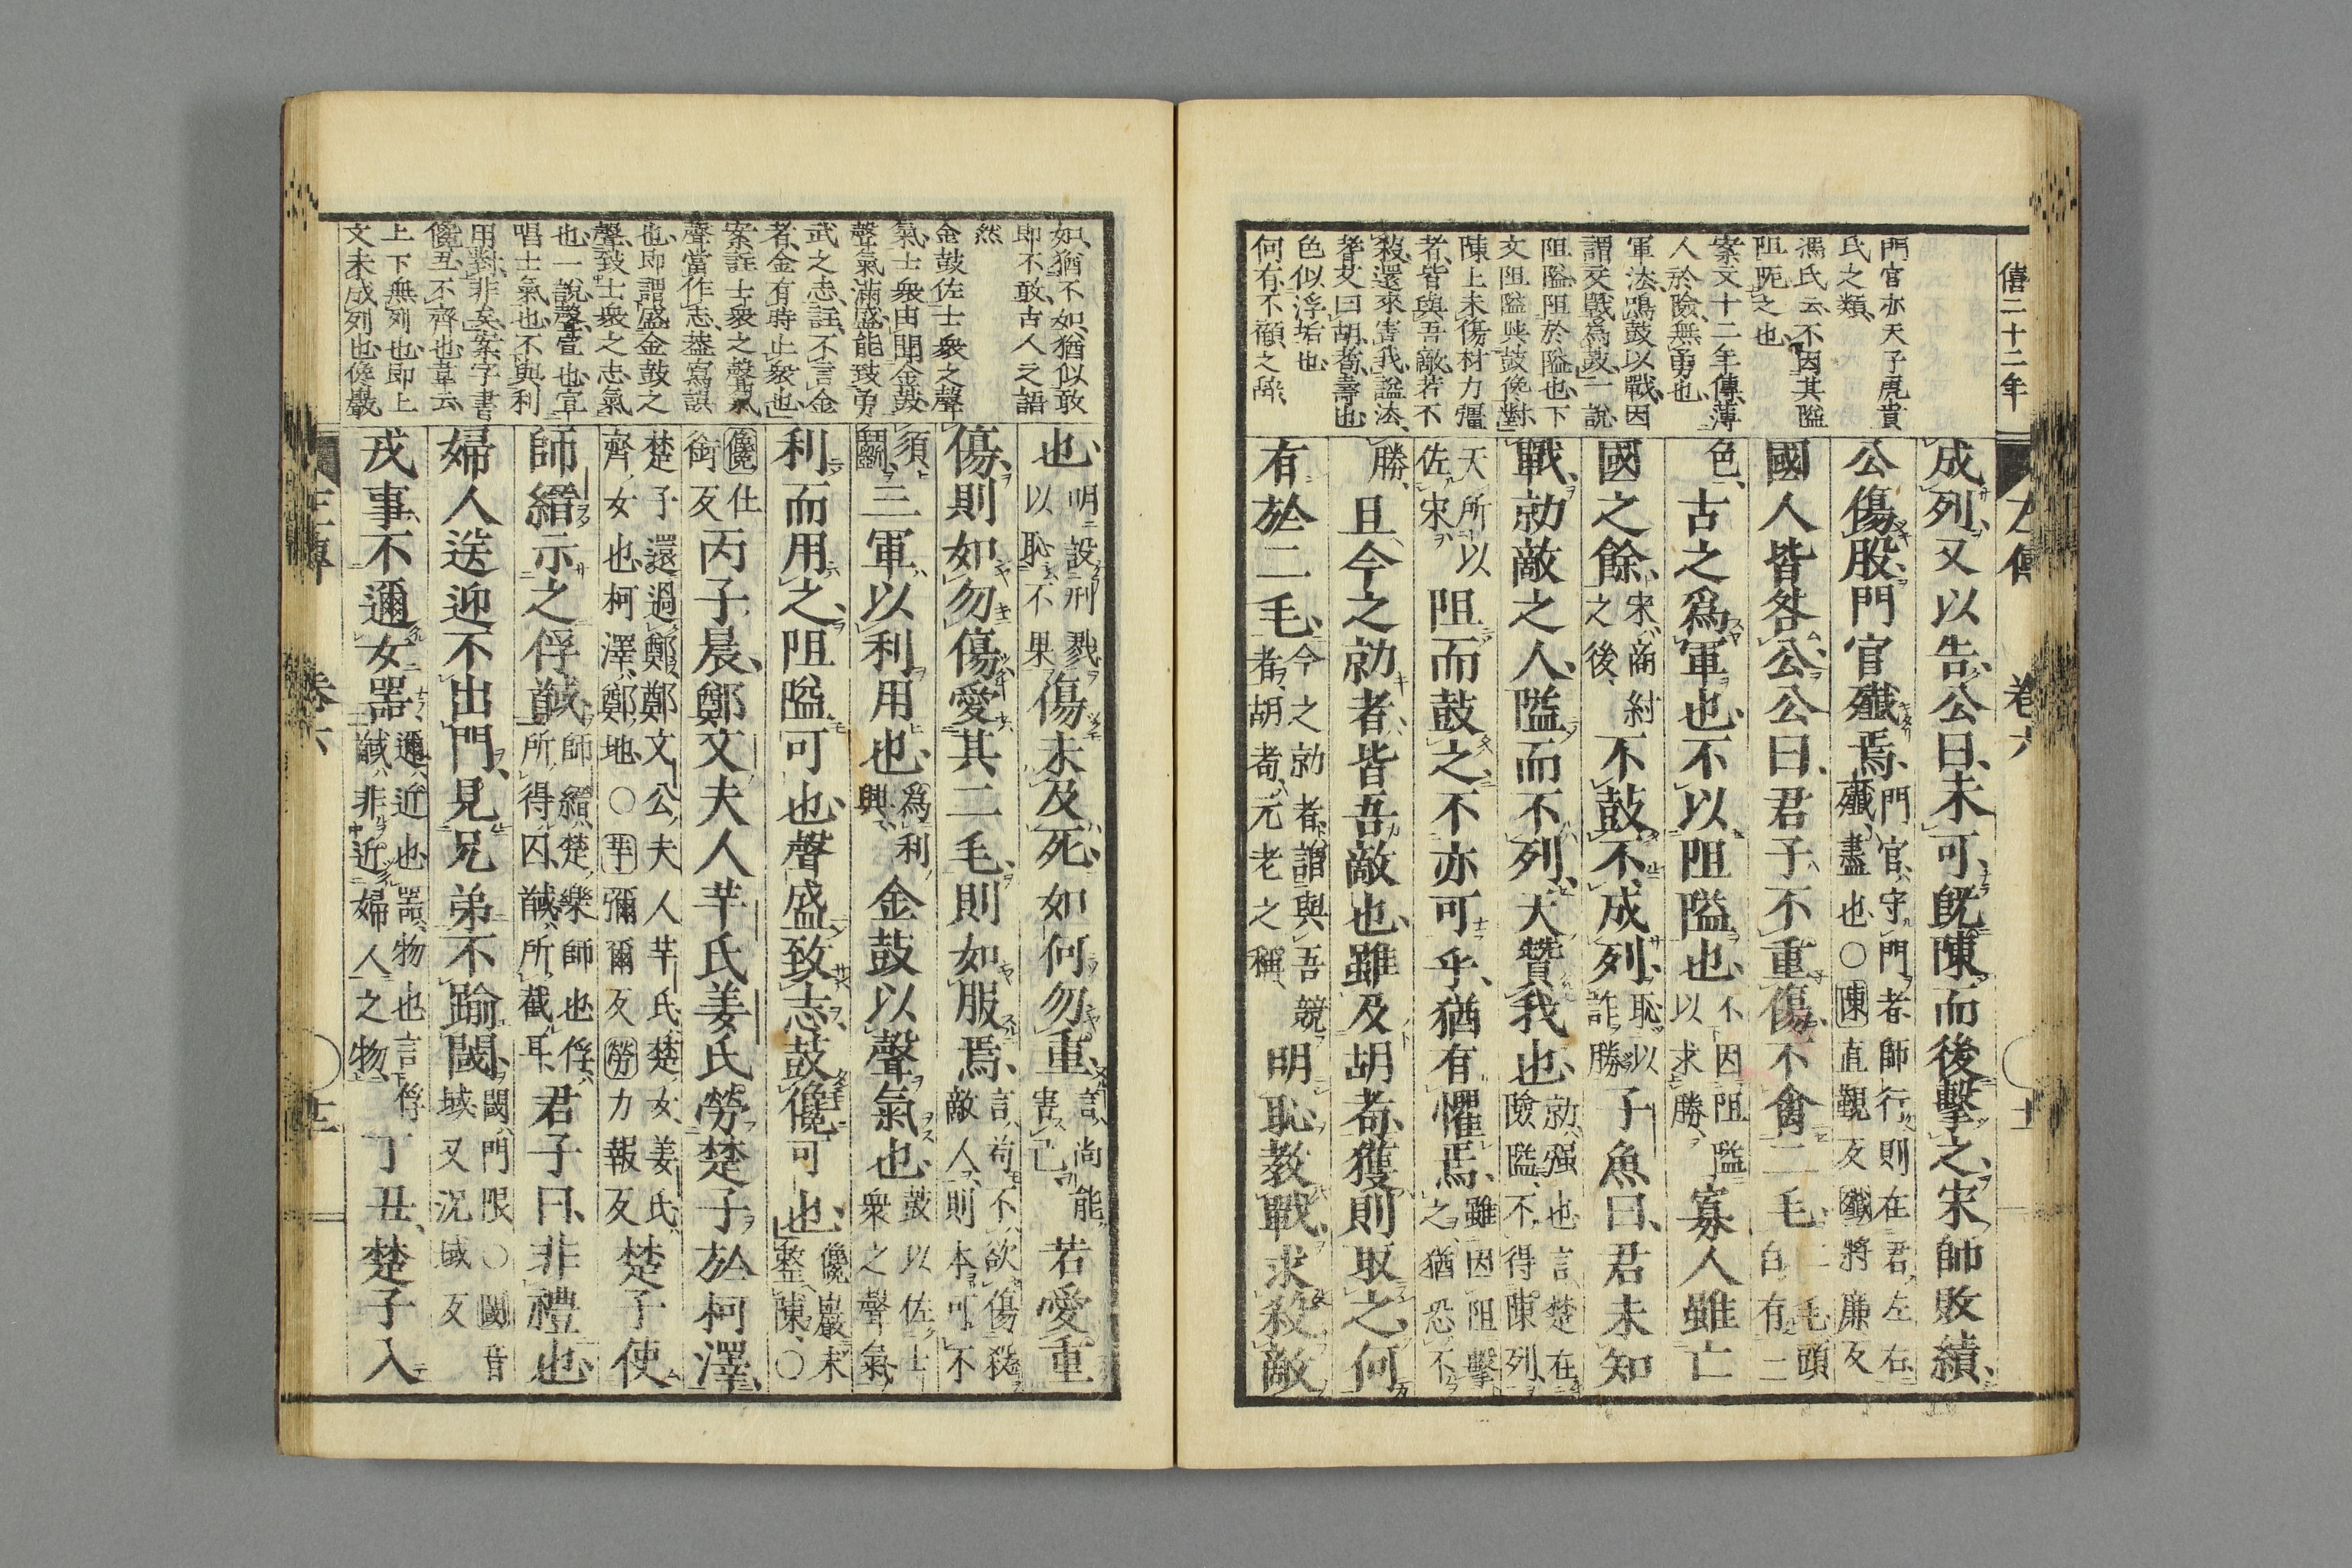 僖二十二年
左傳　卷六
門官亦天子虎賁
氏之類、
馮氏云、不因其隘
阻阨之也、
案文十二年傳、薄
人於險、無勇也、
軍法、鳴鼓以戰、因
謂交戰爲鼓、一說
阻隘、阻於隘也、下
文阻隘與鼓儳對、
陳上未傷材力彊
者、皆與吾敵、若不
殺、還來害我、謚法、
耆艾曰胡、耇、壽也
色似浮垢也
何有、不顧之辭、
成列、又以告、公曰、未可、旣陳而後擊之、宋師敗績、
公傷股、門官殲焉、門官、守門者、師行則在君左右、殲、盡也、○陳直覲反殲將廉反
國人皆咎公、公曰、君子不重傷、不禽二毛、二毛、頭白有二
色、古之爲軍也、不以阻隘也、不因阻隘以求勝、寡人雖亡
國之餘、宋、商紂之後、不鼓不成列、恥以詐勝子魚曰、君未知
戰、勍敵之人、隘而不列、天贊我也、勍、强也、言楚在險隘、不得陳列、
天所以佐宋、阻而鼓之、不亦可乎、猶有懼焉、雖因阻擊之、猶恐不
勝、且今之勍者、皆吾敵也、雖及胡耇、獲則取之、何
有於二毛、今之勍者、謂與吾競者、胡耇、元老之稱、明恥教戰、求殺敵
如、猶不如、猶似敢
即不敢、古人之語
然
金鼓佐士衆之聲
氣、士衆由聞金鼓、
聲氣滿盛、能致勇
武之志、註、不言金
者、金有時止衆也、
案註士衆之聲氣
聲當作志、葢寫誤
也、卽謂盛金鼓之
聲、致士衆之志氣
也、一說、聲、宣也、宣
唱士氣也、不與利
用對、非矣、案字書
儳互、不齊也、韋云、
上下無列也、卽上
文未成列也、儳巖
也、明設刑戮、以恥不果傷未及死、如何勿重、言尚能害己、若愛重
傷、則如勿傷、愛其二毛、則如服焉、言苟不欲傷殺敵人、則本可不
須鬬、三軍以利用也、爲利興、金鼓以聲氣也、鼓以佐士衆之聲氣、
利而用之、阻隘可也、聲盛致志、鼓儳可也、儳巖未整陳、○
儳仕銜反丙子、晨、鄭文夫人芊氏姜氏勞楚子於柯澤、
楚子還過鄭、鄭文公夫人芊氏、楚女、姜氏、齊女也、柯澤、鄭地、○芊彌爾反勞力報反楚子使
師縉示之俘馘、師縉、楚樂師也、俘、所得囚、馘、所截耳、君子曰、非禮也、
婦人送迎不出門、見兄弟不踰閾、閾、門限、○閾音域又況域反
戎事不邇女器、邇、近也、器、物也、言俘馘、非近婦人之物、丁丑、楚子入
左傳　卷六